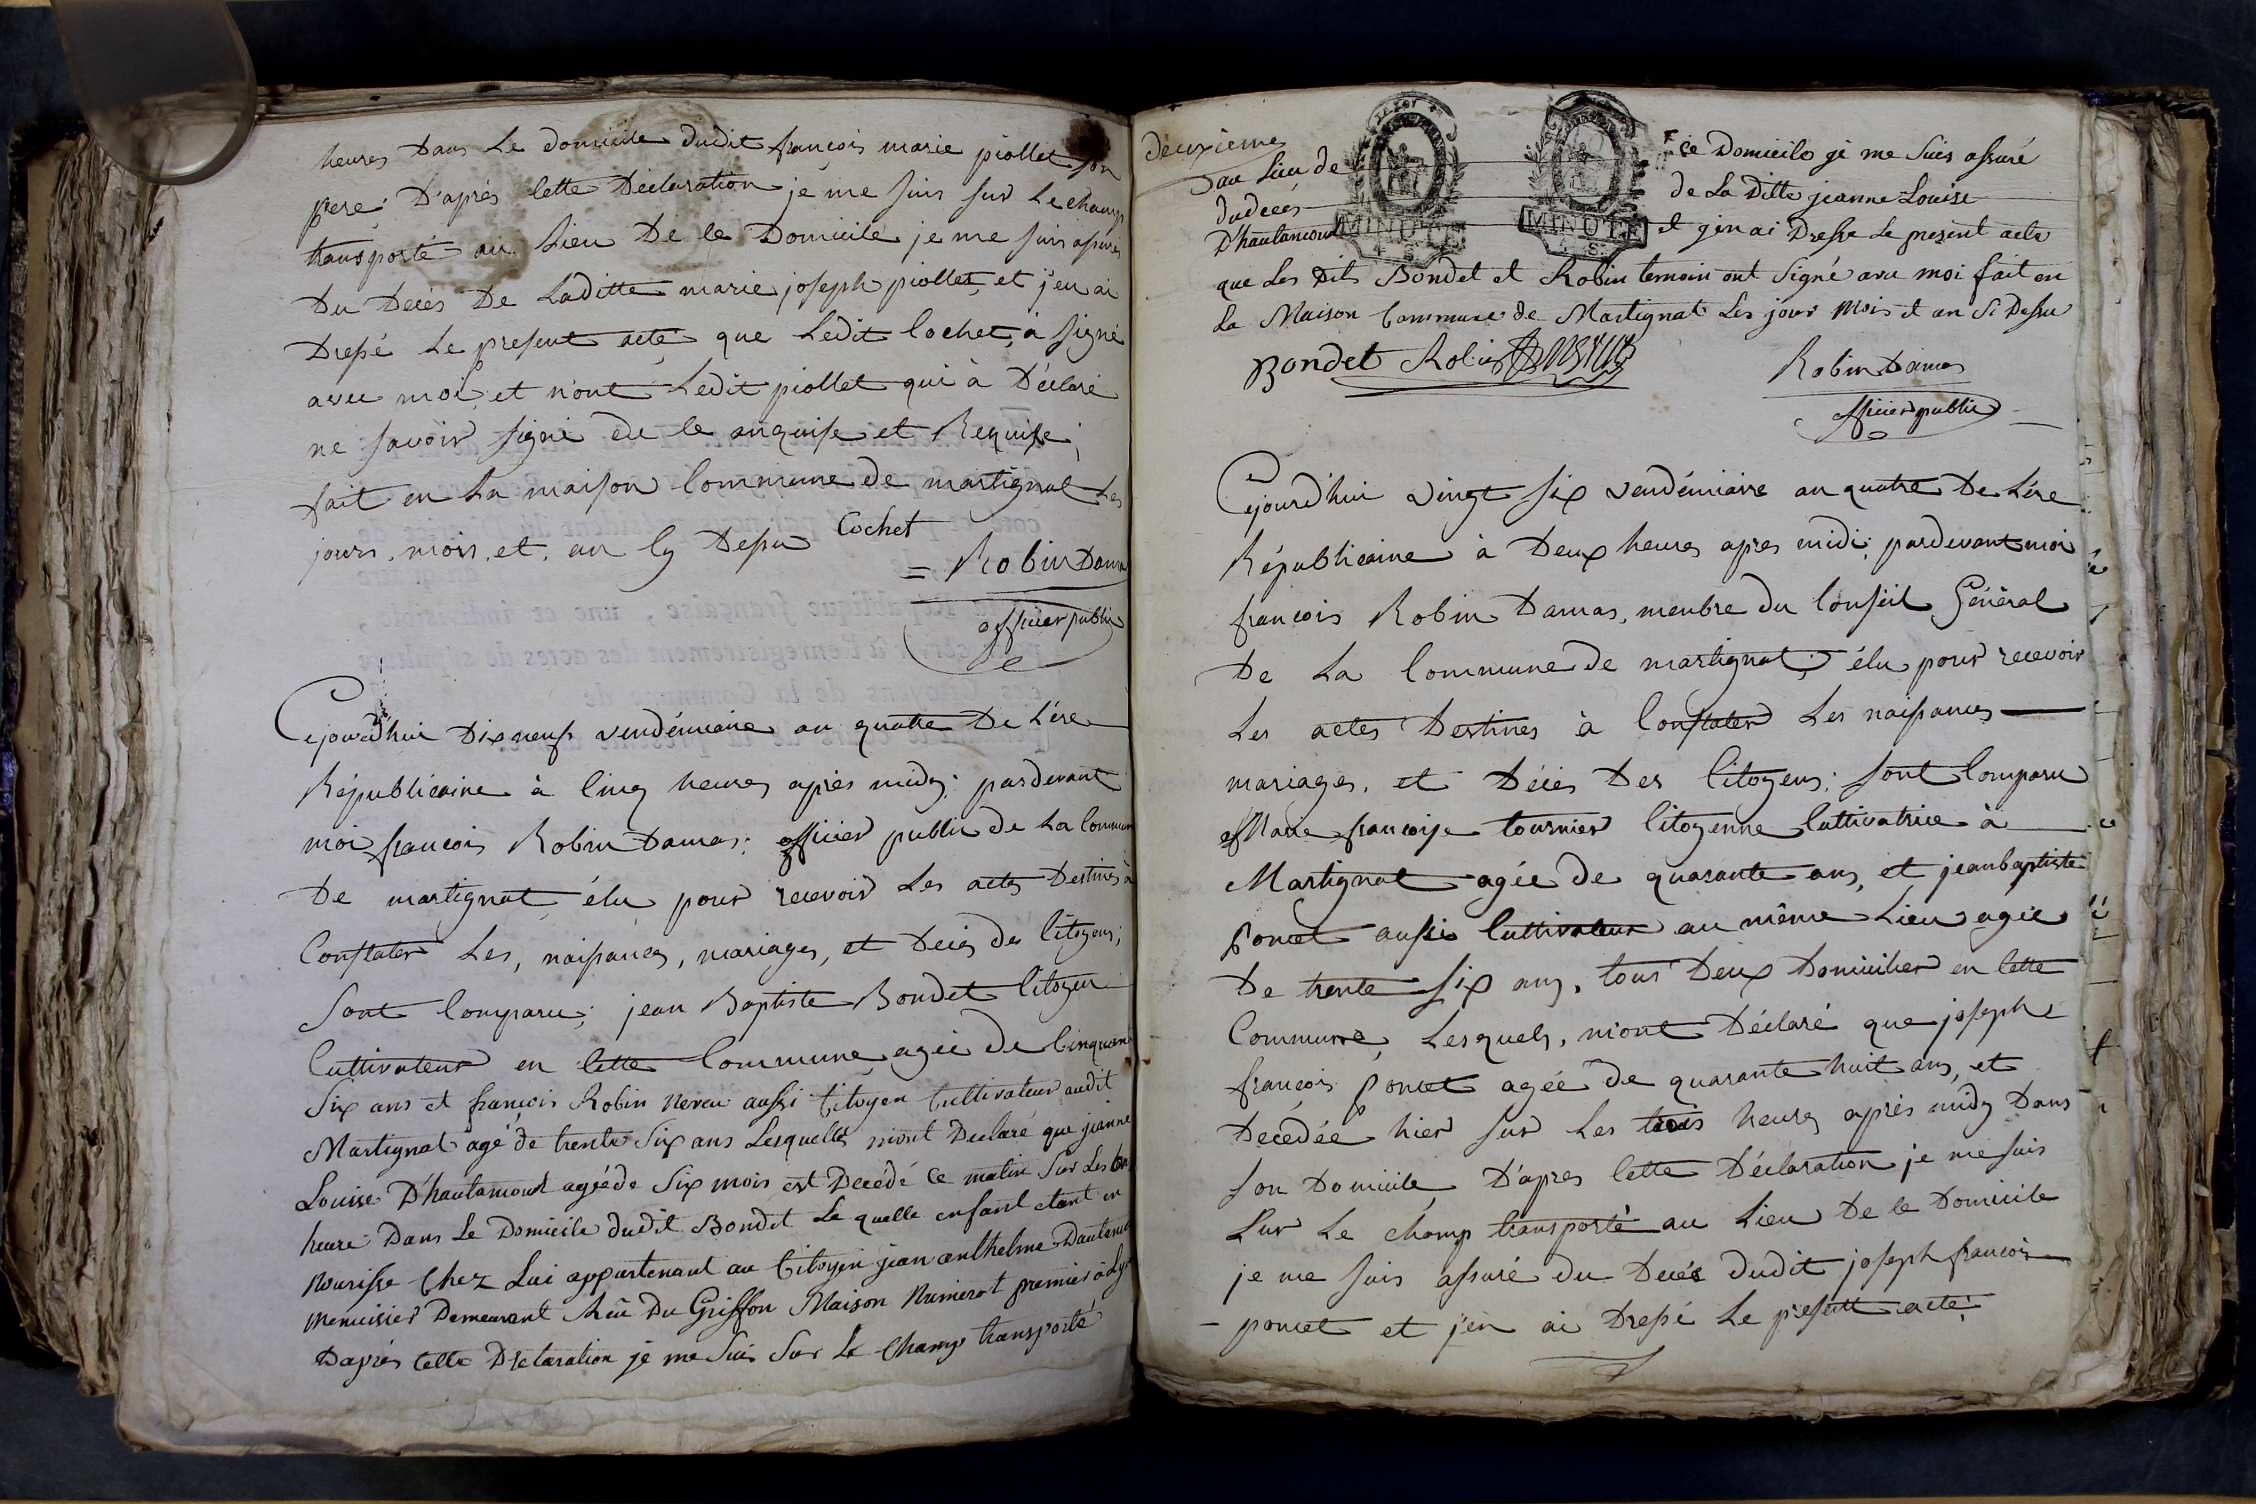 heures Dans Le domicile dudit françois marie piollet son
pere; D'après Cette Déclaration je me suis sur Le champ
transporté au Lieu De Ce Domicile je me suis assuré
Du Decès De Laditte marie joseph piollet, et j'en ai
Dressé Le present acte que Ledit Cochet, à signé
avec moi, et n'ont Ledit piollet qui à Déclaré
ne savoir signé de Ce enquise et Requise;
fait en La maison Commune de martignat Les
jours, mois, et, an Cy Dessu
Cochet
= Robin Damas
officier public
Cejourd'hui Dixneuf vendémiaire an quatre De L'ére
Républicaine à Cinq heures après midy; pardevant
moi françois Robin Damas; officier public de La Commune
De martignat, élu pour recevoir Les actes Destinés à
Constater Les, naissances, mariages, et Decès des Citoyens;
Sont Comparu; jean Baptiste Bondet Citoyen
Cultivateur en Cette Commune, agée De Cinquante
Six ans et françois Robin Neveu aussi Citoyen Cultivateur audit
Martignat agé de trente Six ans Lesquelles m'ont Declaré que jeanne
Louise D'hautancourt agée de Six mois est Decédé Ce matin Sur Les
heure Dans Le Domicile dudit Bondet La quelle enfant etant en
Nourisse Chez Lui appartenant au Citoyen jean anthelme
Menuisier Demeurant Rüe Du Griffon Maison Numerot premier à Lyon
D'après Cette Declaration je me Suis Sur Le Champ transporté
deuxième
au Lieu de
du decés
D'hautancourt
MINUTE
4 S.
MINUTE
4 S.
ce Domicile je me Suis assuré
de La Ditte jeanne Louise
et j'en ai Dressé Le present acte
que Les Dits Bondet et Robin temoin ont Signé avec moi fait en
La Maison Commune de Martignat Les jour Mois et an Si Dessu
Bondet Robin
Robin Damas
officier public
Cejourd'hui vingt six vendémiaire an quatre De L'ére
Républicaine à Deux heures apres midi; pardevant moi
françois Robin Damas, menbre du Conseil Général
De La Commune de martignat; élu pour recevoir
Les actes Destinés à Constater Les naissances
mariages, et Décès Des Citoyens; sont Comparu
Marie françoise tournier Citoyenne Cultivatrice à
Martignat agée de quarante ans, et jeanbaptiste
Poncet aussi Cultivateur au même Lieu agée
De trente six ans, tous Deux Domicilier en Cette
Commune, Lesquels, m'ont Déclaré que joseph
françois poncet agée de quarante huit ans, et
Decédée hier sur Les trois heures après midy Dans
son Domicile, D'apres Cette Déclaration je me suis
Sur Le champ transporté au Lieu De Ce Domicile
je me suis assuré du Decès dudit joseph francois
poncet et j'en ai Dressé Le present acte;